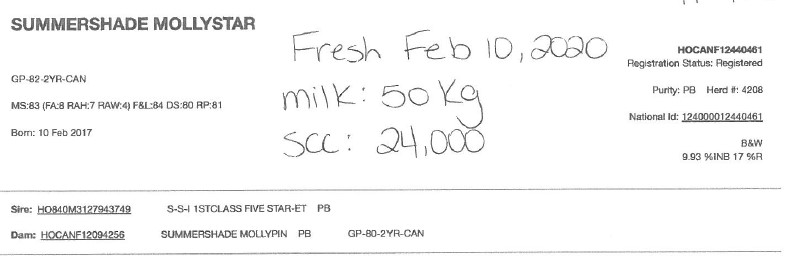 SUMMERSHADE MOLLYSTAR
Fresh Feb 10, 2020
HOCANF12440461
Registration Status: Registered
GP-82-2YR-CAN
milk: 50 Kg
Purity: PB Herd #: 4208
MS:83 (FA:8 RAH:7 RAW:4) F&L:84 DS:80 RP:81
National Id: 124000012440461
Born: 10 Feb 2017
SCC: 24,000
B&W
9.93 %INB 17 %R
Sire: HO840M3127943749 S-S-I 1STCLASS FIVE STAR-ET PB
Dam: HOCANF12094256 SUMMERSHADE MOLLYPIN PB GP-80-2YR-CAN